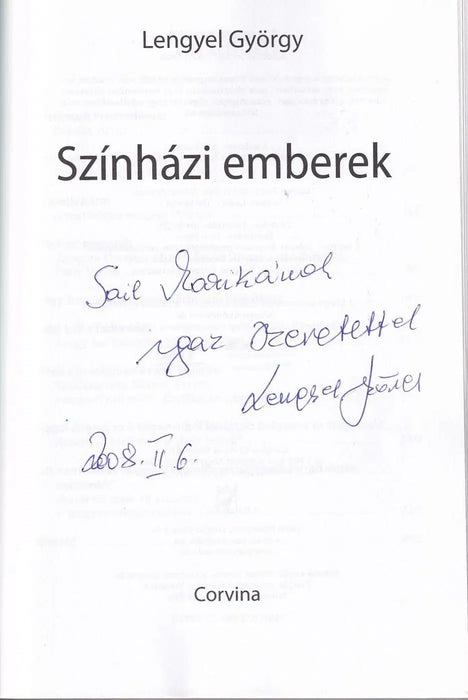 Lengyel György
Színházi emberek
Marikának
igaz szeretettel
Lengyel György
2008. II 6.
Corvina